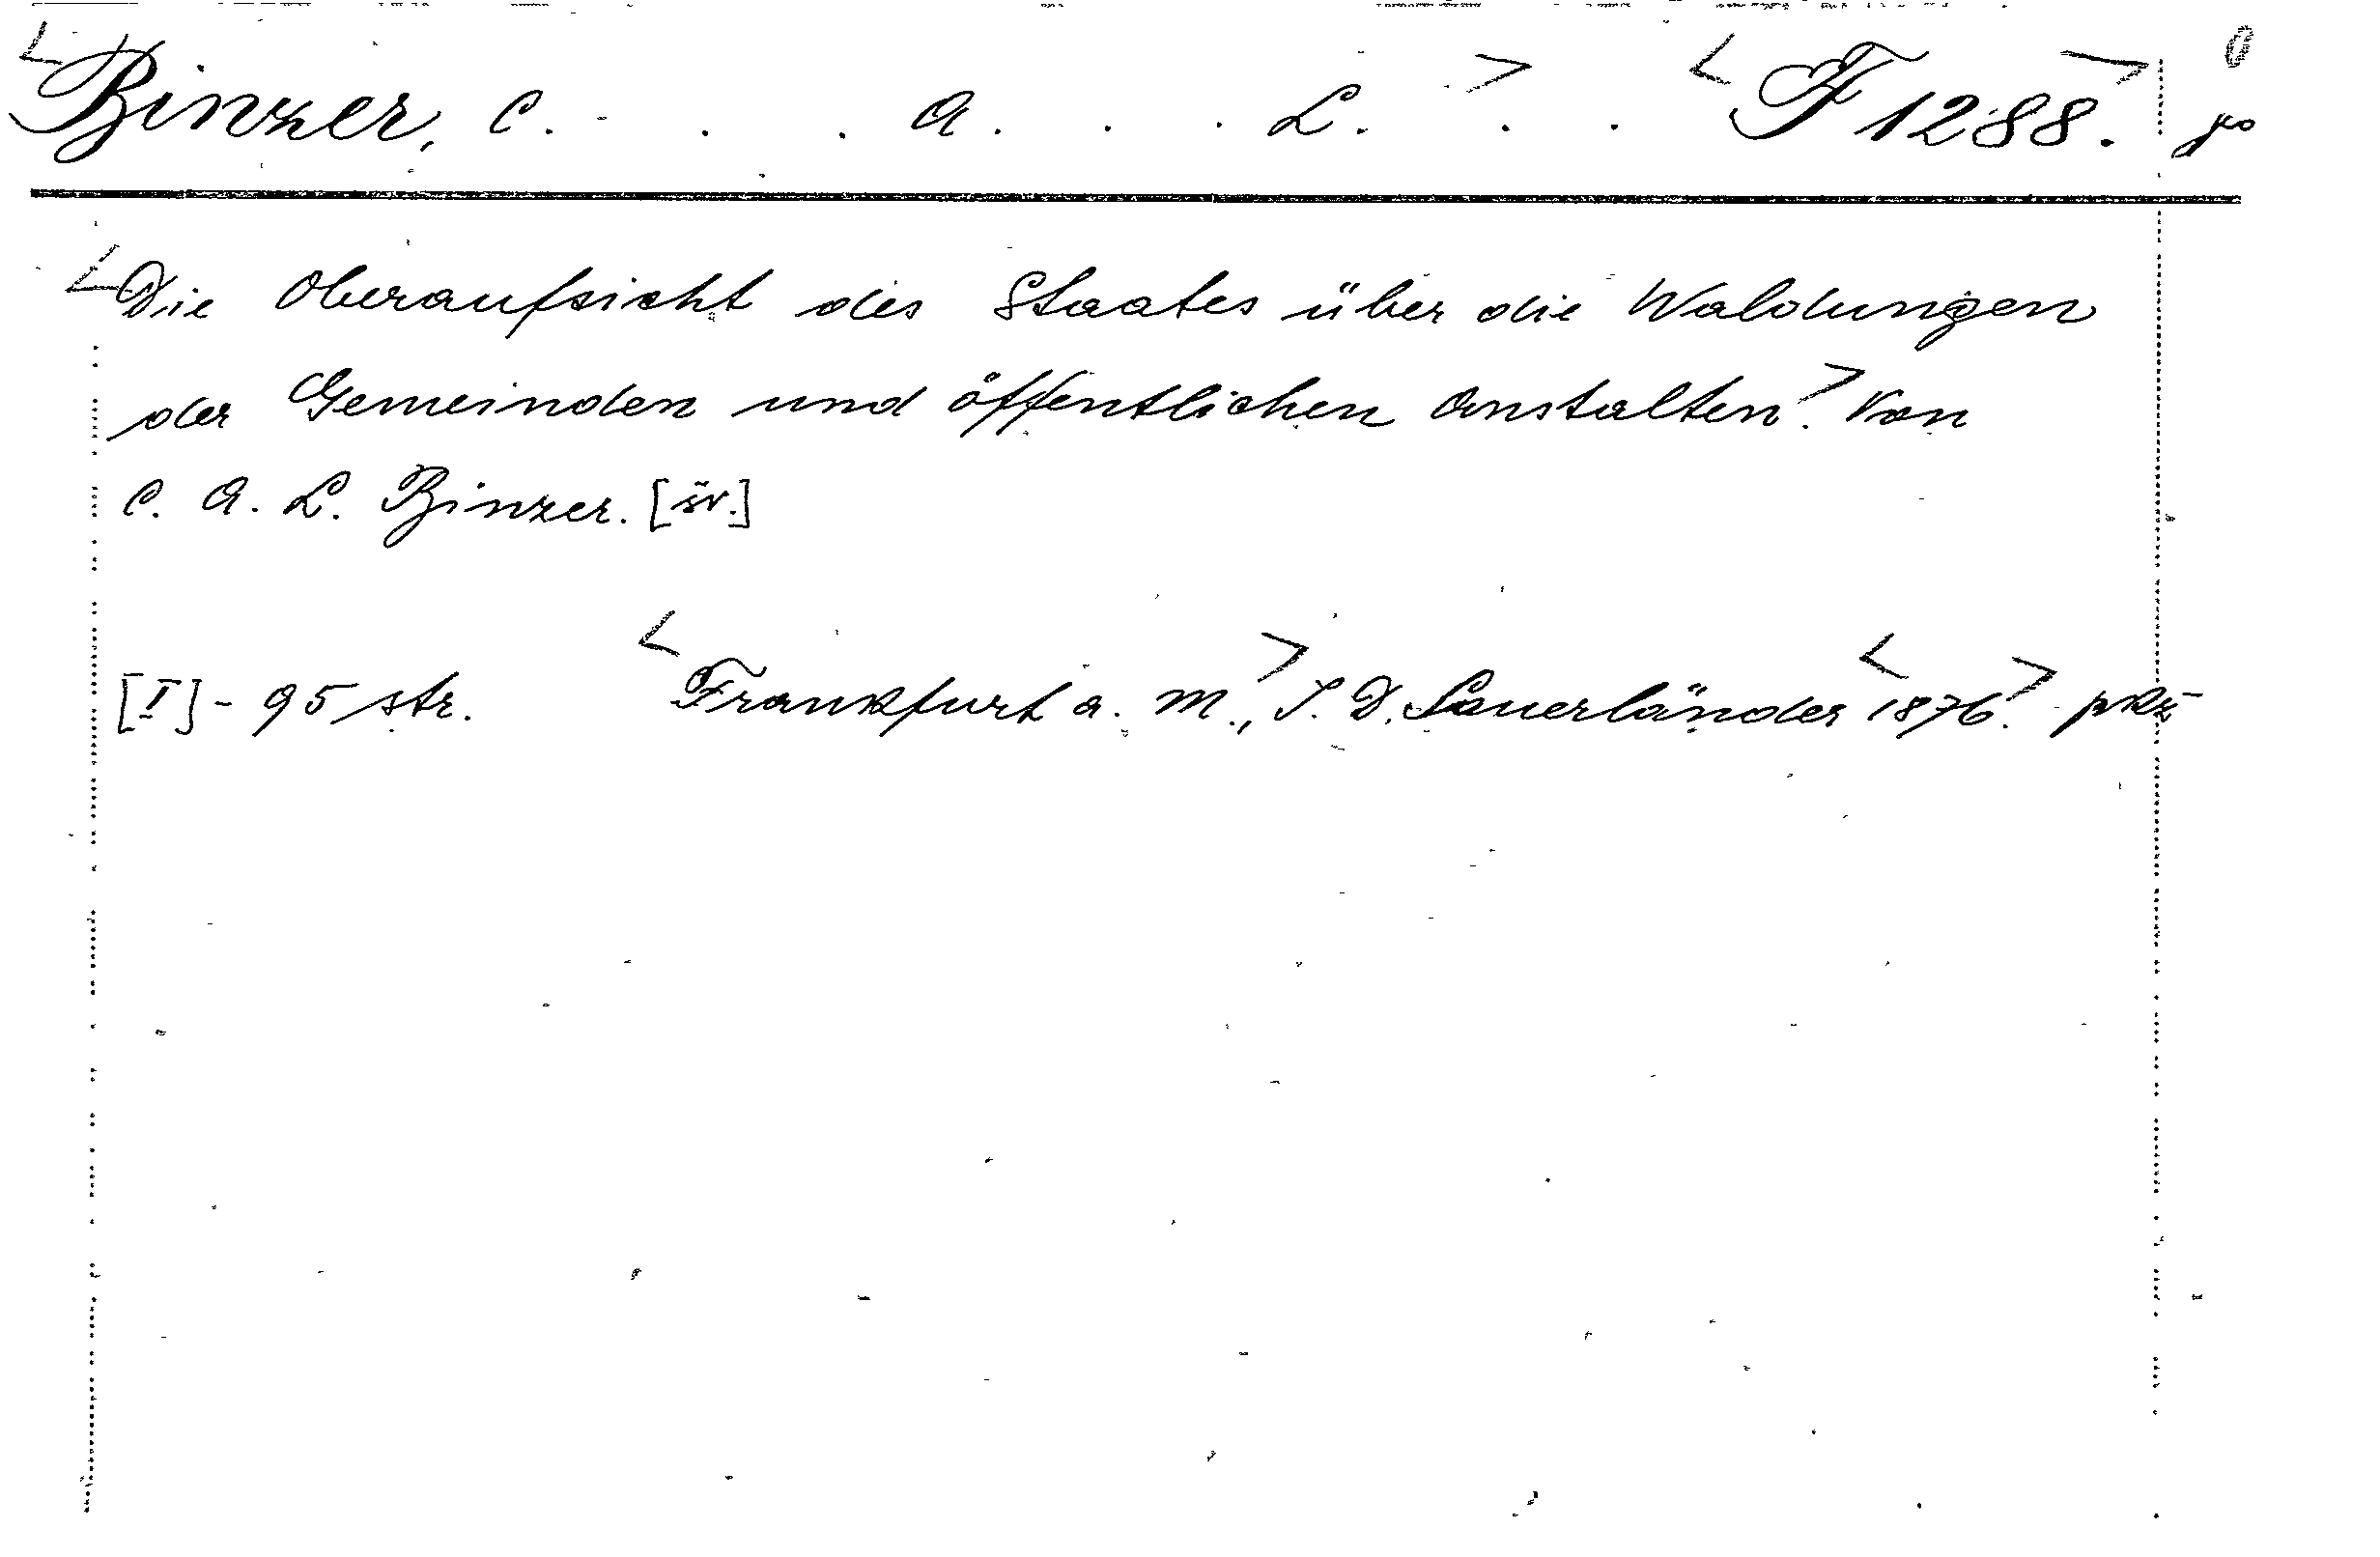 <Binzer, C. - . . A. . . L.> . . <F 1288.>
<Die Oberaufsicht des Staates über die Waldungen
der Gemeinden und öffentlichen Anstalten.> Von
C. A. L. Binzer. [sv.]
[I] - 95 str. <Frankfurt a. M.,> J. D. Sauerländer <1876.>